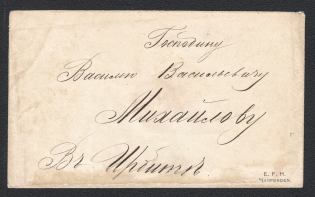 Господину
Василию Васильевичу
Михайлову
Въ Ирбитѣ.
E. F. H.